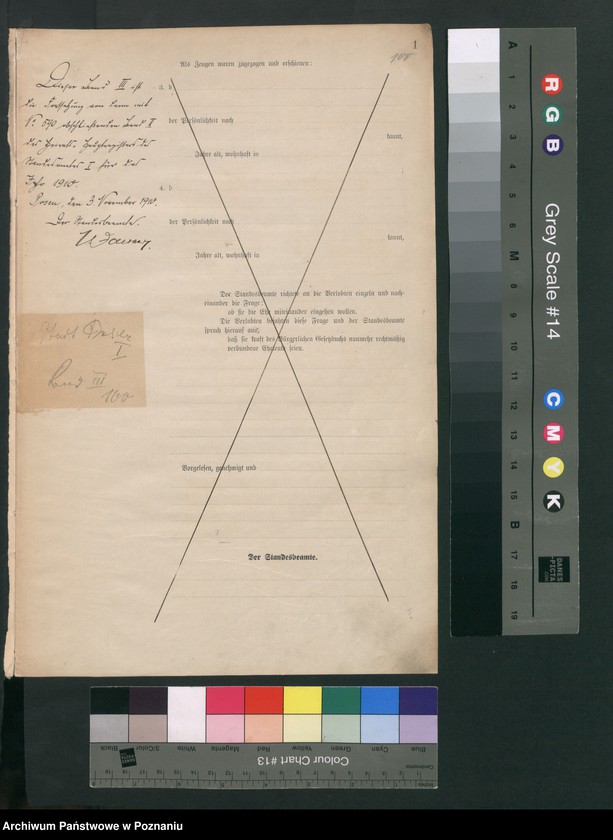 1
100
Dieser Band III ist
die Fortsetzung von dem mit
No. 590 abschließenden Band II
des Heirats-Hauptregisters des
Standesamtes I für das
Jahr 1910.
Posen, den 3. November 1910.
Der Standesbeamte.
Als Zeugen waren zugezogen und erschienen:
3. d
der Persönlichkeit nach
kannt,
Jahre alt, wohnhaft in
4. d
der Persönlichkeit nach
kannt,
Jahre alt, wohnhaft in
Der Standesbeamte richtete an die Verlobten einzeln und nach-
einander die Frage:
ob sie die Ehe miteinander eingehen wollen.
Die Verlobten bejahten diese Frage und der Standesbeamte
sprach hierauf aus,
daß sie kraft des Bürgerlichen Gesetzbuchs nunmehr rechtmäßig
verbundene Eheleute seien.
Stadt Posen
I
Band III
100
Vorgelesen, genehmigt und
Der Standesbeamte.
A 1 2 3 4 5 6 M 8 9 10 11 12 13 14 15 B 17 18 19
R G B
Grey Scale #14
C M Y K
DANES
-PICTA
.COM
Blue Cyan Green Yellow Red Magenta White 3/Color Black
Colour Chart #13
Centimetres
Inches
Archiwum Państwowe w Poznaniu